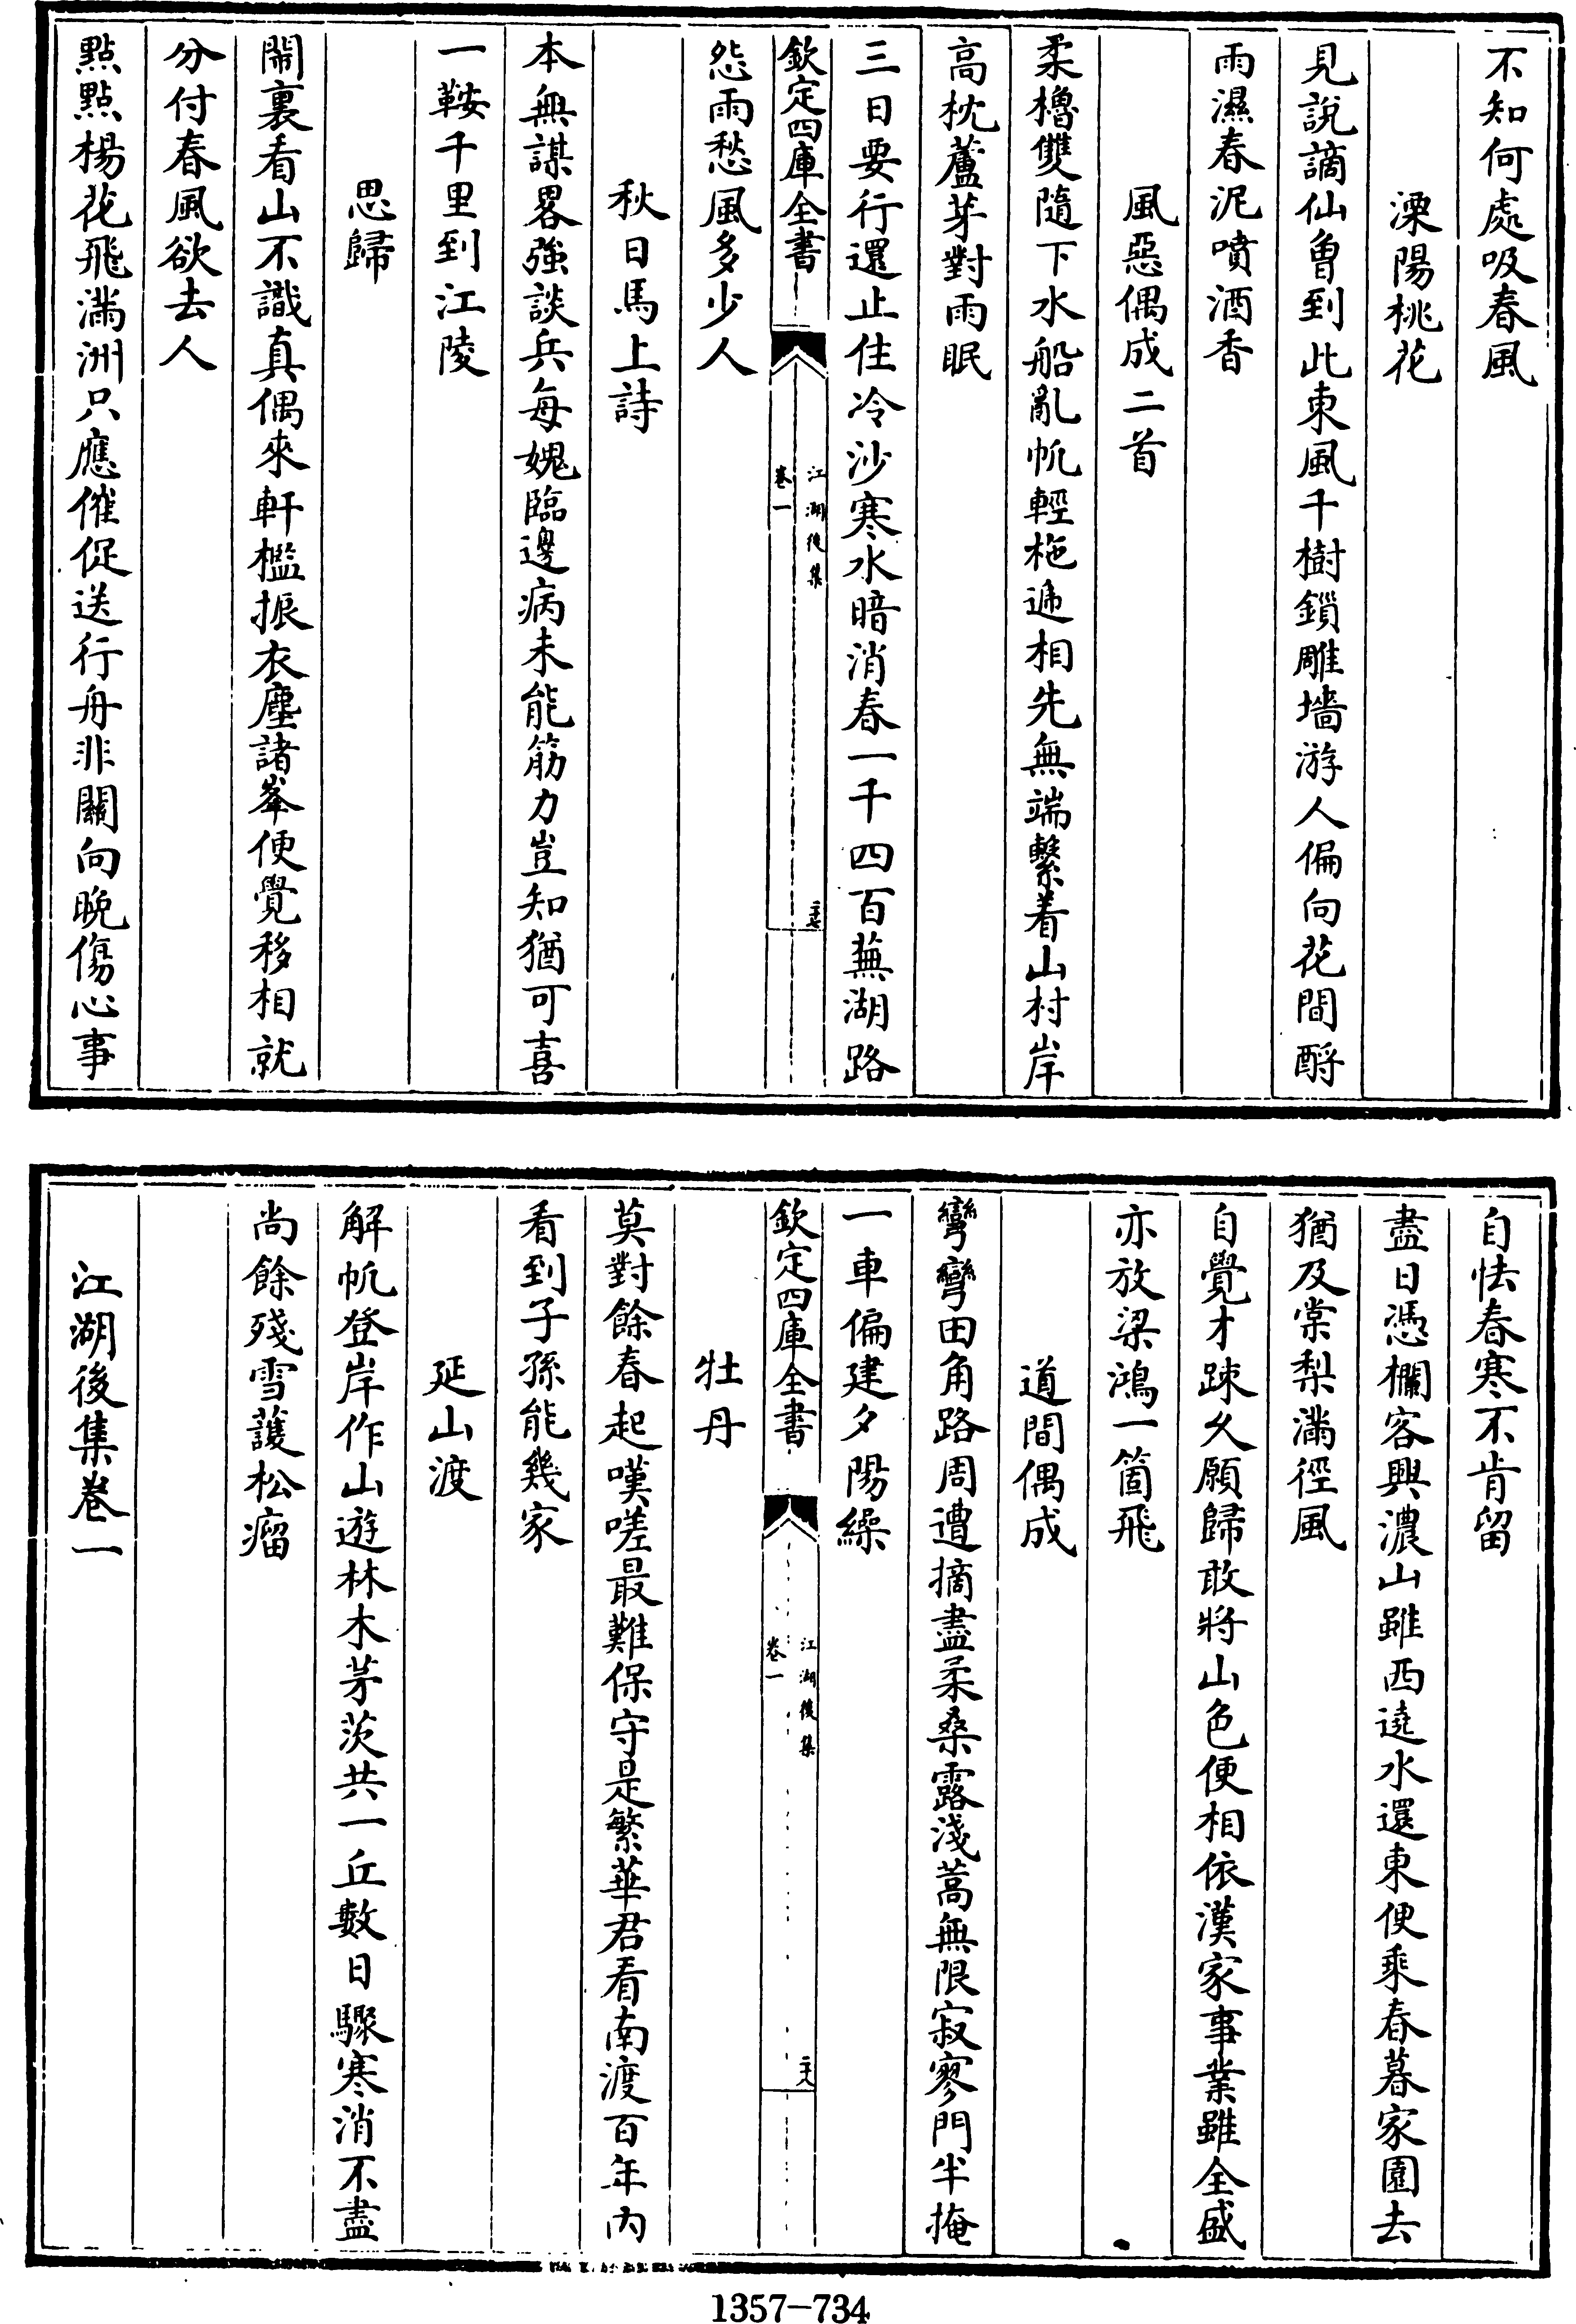 不知何處吸春風
溧陽桃花
見說謫仙曾到此東風千樹鎖雕墻游人偏向花間酹
雨濕春泥噴酒香
風惡偶成二首
柔櫓雙隨下水船亂帆輕柂遞相先無端繫着山村岸
高枕蘆芽對雨眠
三日要行還止住冷沙寒水暗消春一千四百蕪湖路
欽定四庫全書
江湖後集
卷一
二十七
怨雨愁風多少人
秋日馬上詩
本無謀畧強談兵每媿臨邊病未能筋力豈知猶可喜
一鞍千里到江陵
思歸
閙裏看山不識真偶來軒檻振衣塵諸峯便覺移相就
分付春風欲去人
點點楊花飛滿洲只應催促送行舟非關向晚傷心事
自怯春寒不肯留
盡日憑欄客興濃山雖西遶水還東便乘春暮家園去
猶及棠梨滿徑風
自覺才踈久願歸敢將山色便相依漢家事業雖全盛
亦放梁鴻一箇飛
道間偶成
彎彎田角路周遭摘盡柔桑露淺蒿無限寂寥門半掩
一車偏建夕陽繰
欽定四庫全書
江湖後集
卷一
二十八
牡丹
莫對餘春起嘆嗟最難保守是繁華君看南渡百年內
看到子孫能幾家
延山渡
解帆登岸作山遊林木茅茨共一丘數日驟寒消不盡
尚餘殘雪護松瘤
江湖後集卷一
1357-734